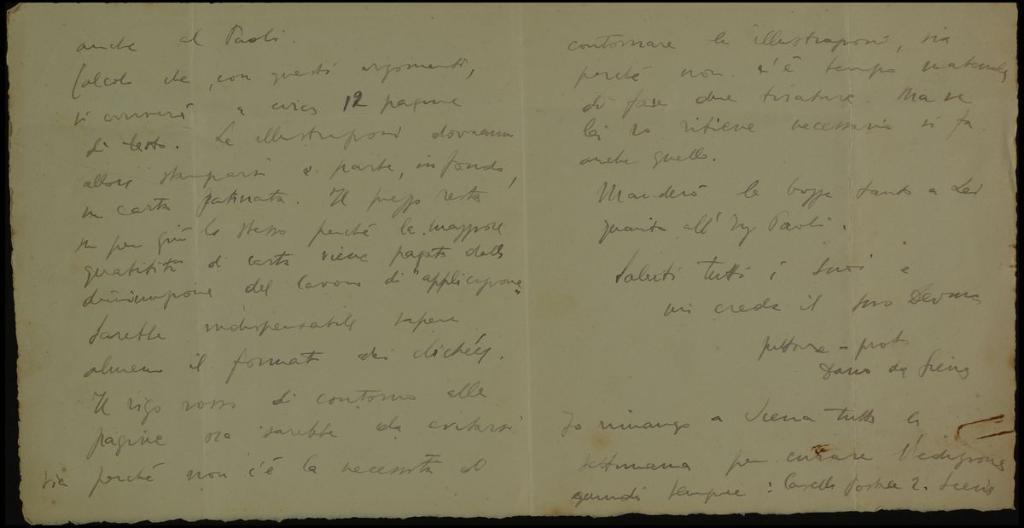 anche al Paoli.
Calcolo che, con questi argomenti,
si arriverà a circa 12 pagine
di testo. Le illustrazioni dovranno
allora stamparsi a parte, in fondo,
su carta patinata. Il prezzo resta
su per giù lo stesso perché la maggiore
quantità di carta viene pagata dalla
diminuzione del lavoro di "applicazione"
Sarebbe indispensabile sapere
almeno il formato dei clichées.
Il rigo rosso di contorno alle
pagine ora sarebbe da evitarsi
sia perché non c'è la necessità di
contornare le illustrazioni, sia
perché non c'è tempo materiale
di fare due tirature. Ma se
lei lo ritiene necessario si fa
anche quello.
Manderò le bozze tanto a Lei
quanto all'Ing Paoli.
Saluti tutti i Suoi e
mi creda il suo Devmo
pittore - prot
Dario da Siena
Io rimango a Siena tutta la
settimana per curare l'edizione
quindi sempre: Casella Postale 2. Siena